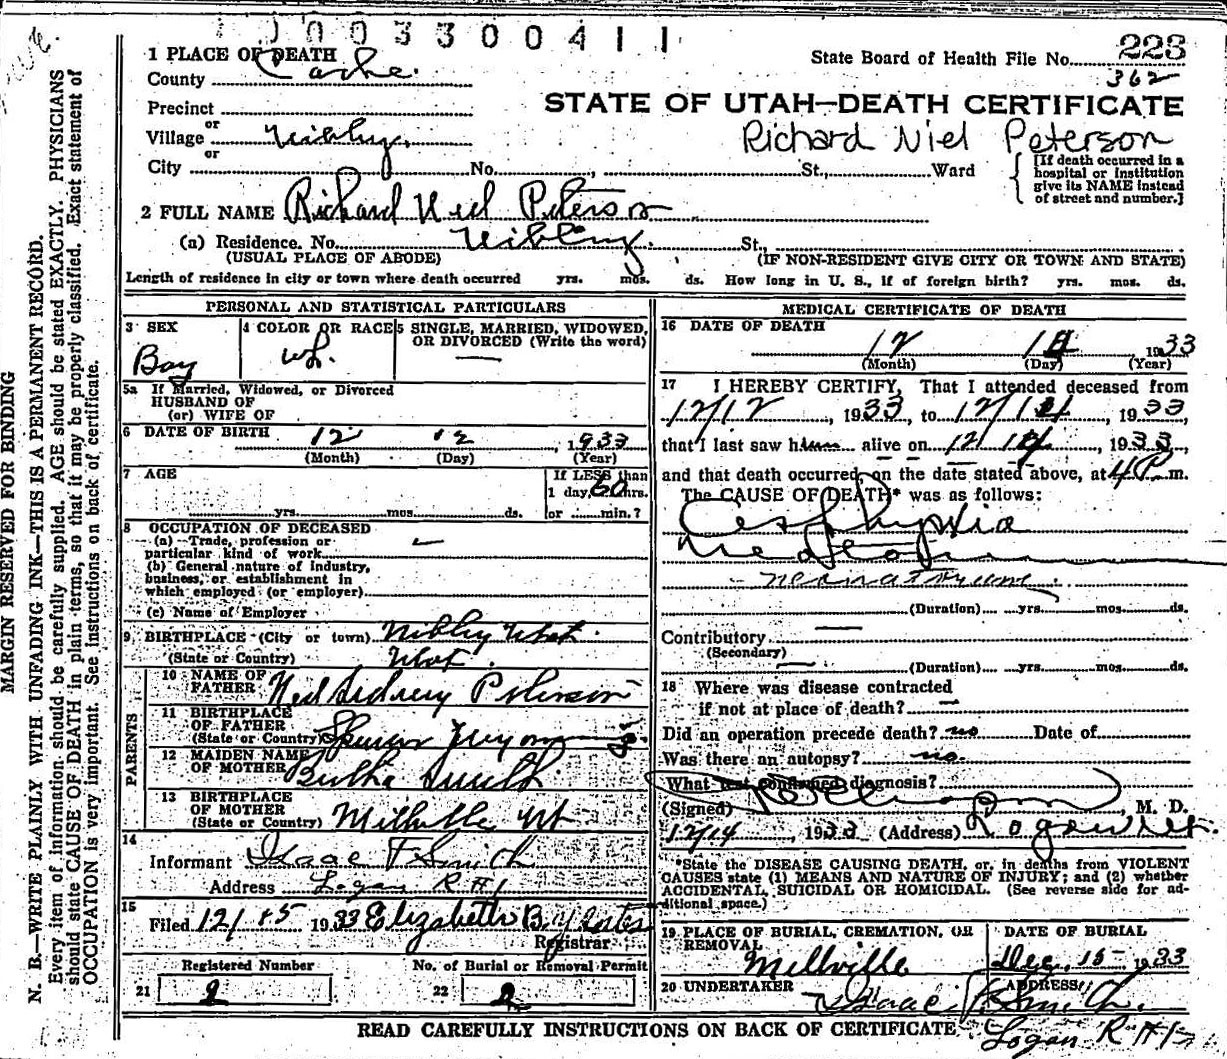 1003300411
1 PLACE OF DEATH
State Board of Health File No. 223
County Cache.
362
STATE OF UTAH—DEATH CERTIFICATE
Precinct
or
Village Nibley.
Richard Niel Peterson
or
City No. , St., Ward
[If death occurred in a hospital or institution give its NAME instead of street and number.]
2 FULL NAME Richard Niel Peterson
(a) Residence. No. Nibley. St.,
(USUAL PLACE OF ABODE) (IF NON-RESIDENT GIVE CITY OR TOWN AND STATE)
Length of residence in city or town where death occurred yrs. mos. ds. How long in U. S., if of foreign birth? yrs. mos. ds.
PERSONAL AND STATISTICAL PARTICULARS
3 SEX
Boy
4 COLOR OR RACE
wh.
5 SINGLE, MARRIED, WIDOWED, OR DIVORCED (Write the word)
5a If Married, Widowed, or Divorced
HUSBAND OF
(or) WIFE OF
6 DATE OF BIRTH 12 12 , 1933
(Month) (Day) (Year)
7 AGE
yrs. mos. ds.
If LESS than
1 day, 60 hrs.
or min.?
8 OCCUPATION OF DECEASED
(a) Trade, profession or
particular kind of work
(b) General nature of industry,
business, or establishment in
which employed (or employer)
(c) Name of Employer
9 BIRTHPLACE (City or town) Nibley Utah.
(State or Country) Utah.
PARENTS
10 NAME OF FATHER Neil Sidney Peterson
11 BIRTHPLACE OF FATHER
(State or Country)
12 MAIDEN NAME OF MOTHER Bertha Smith
13 BIRTHPLACE OF MOTHER
(State or Country) Millville Ut
14
Informant Isaac F Smith
Address Logan R #1
15
Filed 12/15 1933 Elizabeth B. Yeates
Registrar
Registered Number
21 2
No. of Burial or Removal Permit
22 2
MEDICAL CERTIFICATE OF DEATH
16 DATE OF DEATH
12 14 1933
(Month) (Day) (Year)
17 I HEREBY CERTIFY, That I attended deceased from
12/12, 1933, to 12/14, 1933,
that I last saw him alive on 12 14, 1933,
and that death occurred, on the date stated above, at 4 P. m.
The CAUSE OF DEATH* was as follows:
Asphyxia
neonatorum
(Duration) yrs. mos. ds.
Contributory
(Secondary)
(Duration) yrs. mos. ds.
18 Where was disease contracted
if not at place of death?
Did an operation precede death? no Date of
Was there an autopsy? no.
What test confirmed diagnosis?
(Signed) , M. D.
12/14, 1933 (Address) Logan Ut.
*State the DISEASE CAUSING DEATH, or, in deaths from VIOLENT
CAUSES state (1) MEANS AND NATURE OF INJURY; and (2) whether
ACCIDENTAL, SUICIDAL OR HOMICIDAL. (See reverse side for ad-
ditional space.)
19 PLACE OF BURIAL, CREMATION, OR REMOVAL
Millville
DATE OF BURIAL
Dec. 15 1933
20 UNDERTAKER
Isaac F Smith.
ADDRESS
Logan R #1
READ CAREFULLY INSTRUCTIONS ON BACK OF CERTIFICATE
MARGIN RESERVED FOR BINDING
N. B.—WRITE PLAINLY WITH UNFADING INK—THIS IS A PERMANENT RECORD.
Every item of information should be carefully supplied. AGE should be stated EXACTLY. PHYSICIANS
should state CAUSE OF DEATH in plain terms, so that it may be properly classified. Exact statement of
OCCUPATION is very important. See instructions on back of certificate.